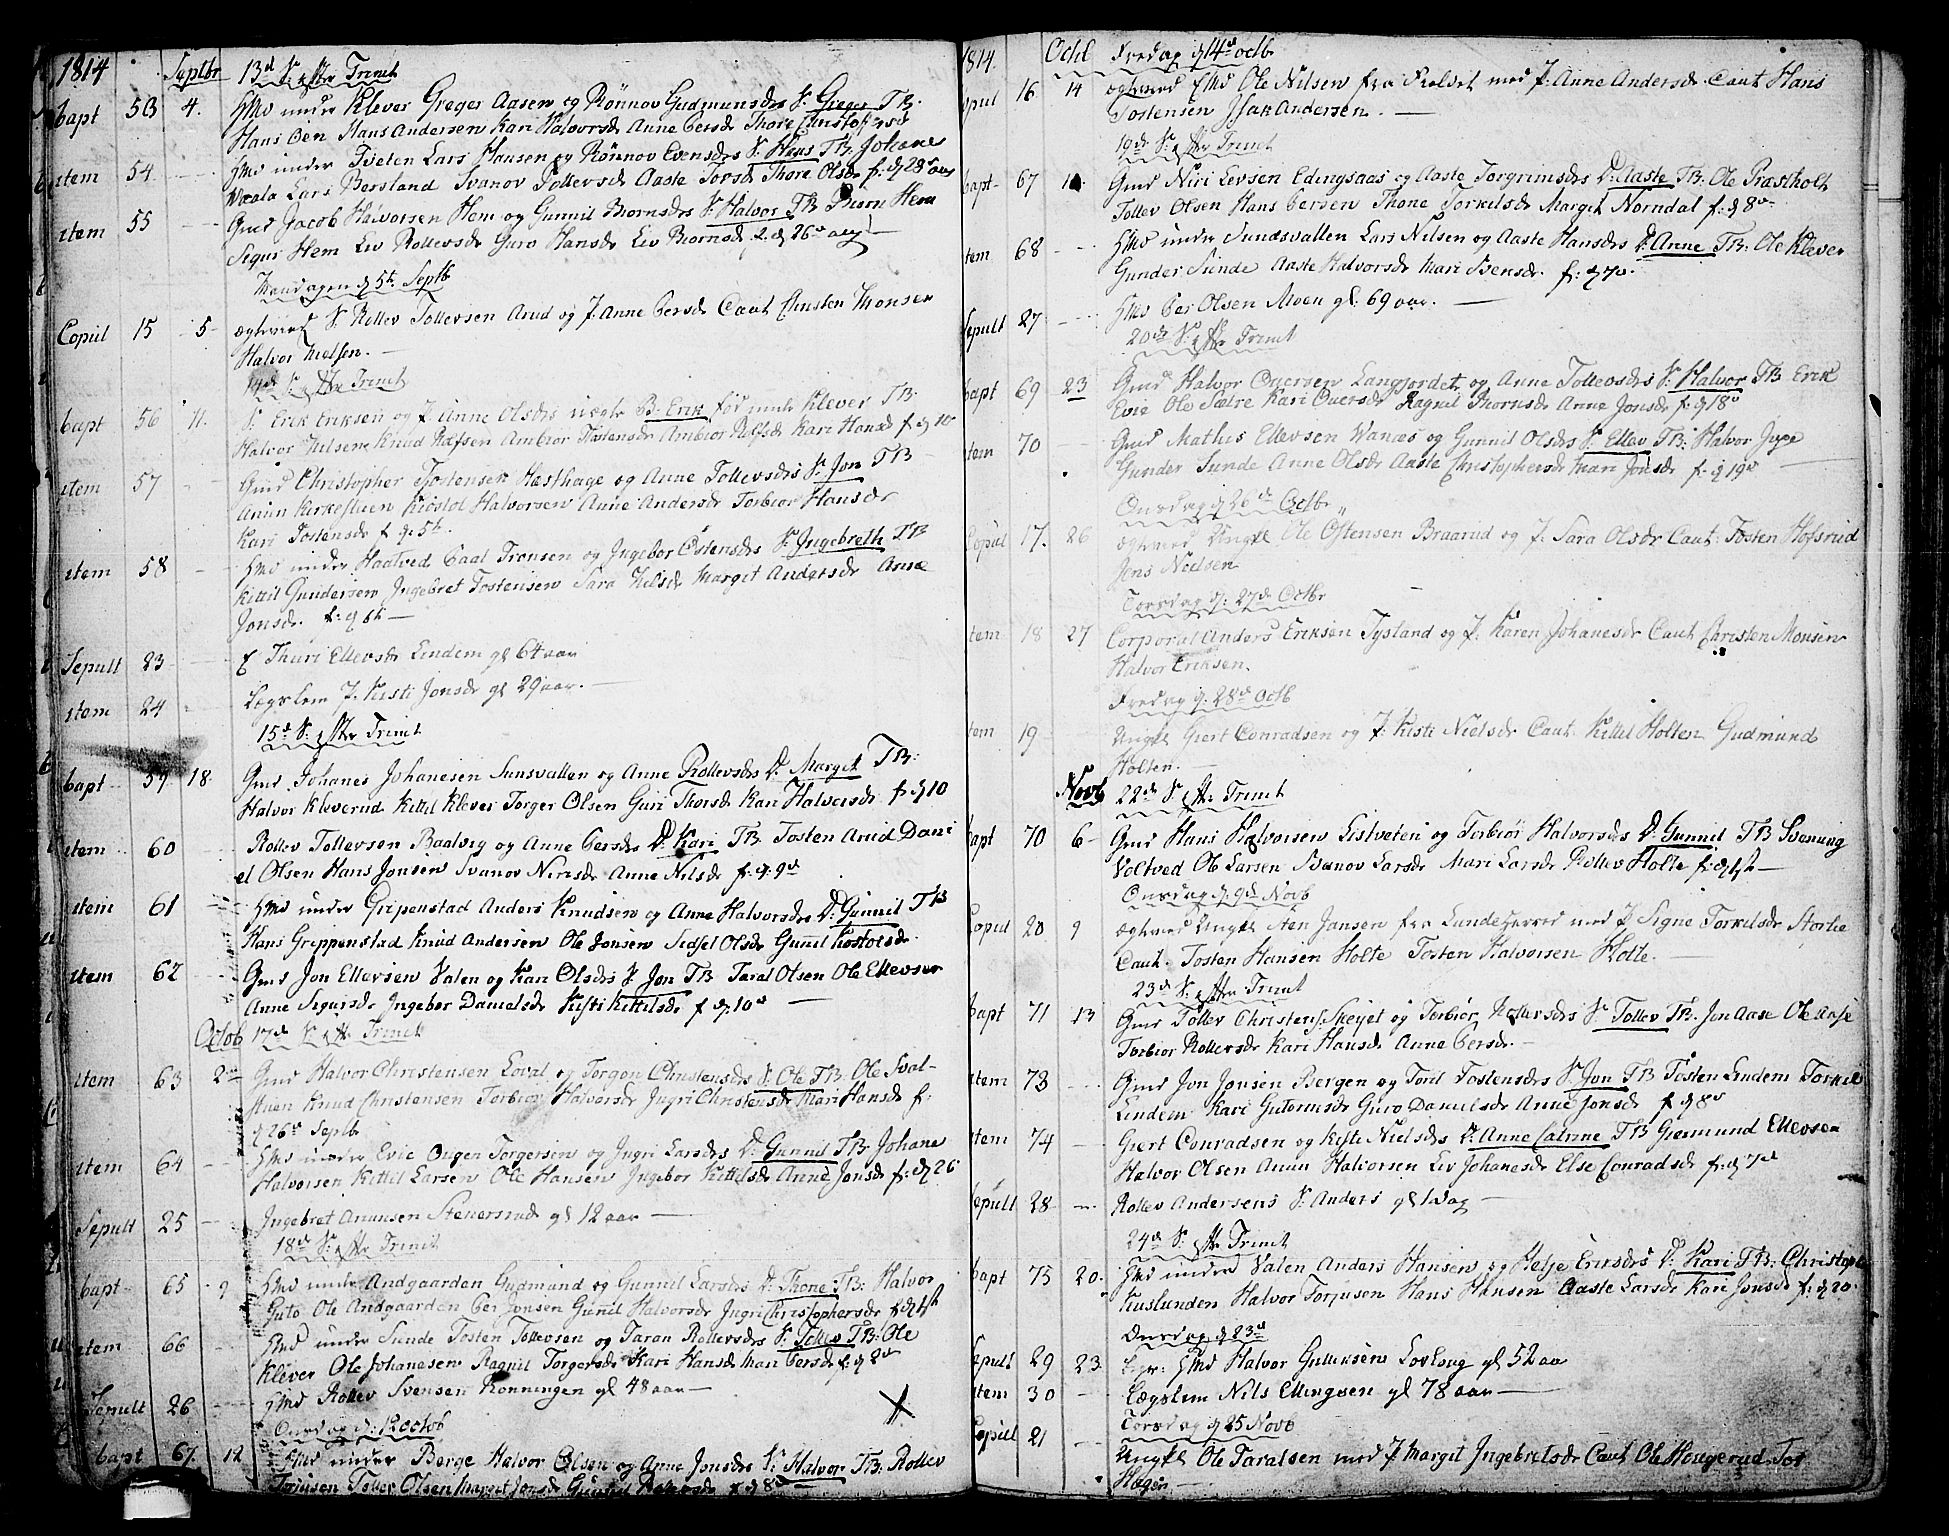 1814 Septbr 13d S. efter Trinit
bapt 53 4. Hmd under Klever Greger Aasen og Rönnov Gudmunsdr S. Greger TB.
Hans Oen Hans Andersen Kari Halvorsdr Anne Persdr Thore Christophersdr
item 54 Hmd under Tveten Lars Hansen og Rönnov Evensdr S. Hans TB. Johane
Vaala Lars Bersland Svanov Tollevsdr Aaste Torsdr Thore Olsdr f. d 28
item 55 Gmd Jacob Halvorsen Hem og Gunnil Biornsdr S. Halvor TB Biorn Hem
Sigur Hem Liv Rollevsdr Guro Hansdr Liv Biornsdr f. d 26 aug
Mandagen d 5te Septb
Copul 15 5 S. Rollev Tollevsen Arud og P. Anne Persdr Caut Christen Monsen
Halvor Nielsen.
14de S. efter Trinit
bapt 56 11. S. Erik Eriksen og P. Anne Olsdr uægte B. Erik fød under Klever TB.
Halvor Nielsen Knud Rolfsen Ambior Tostensdr Ambior Rolfsdr Kari Hansd f. d 10
item 57 Gmd Christopher Tostensen Hæsthage og Anne Tollevsdr S. Jon TB
Anun Kirkestuen Kiostol Halvorsen Anne Andersdr Torbior Hansdr
Kari Tostensdr f. d. 5te.
item 58 Hmd under Haatved Paal Tronsen og Ingebor Ostensdr S. Ingebreth TB
Kittil Gundersen Ingebret Tostensen Sara Nilsdr Margit Andersdr Anne
Jonsdr. f. d 6te
Sepult 23 Thuri Ellevsdr Lindem gl 64 aar
item 24 Lægslem P. Kisti Jonsdr gl 29 aar.
15d S. efter Trinit
bapt 59 18. Gmd Johanes Johanesen Sunsvallen og Anne Rollevsdr D. Margit TB:
Halvor Kleverud Kittil Klever Torger Olsen Guri Thorsdr Kari Halvorsdr f. d 10
item 60 Rollev Tollevsen Baalvig og Anne Persdr D. Kari TB Tosten Arud Dani
el Olsen Hans Jonsen Svanov Nirisdr Anne Nilsdr f. d. 9d
item 61 Hmd under Gripenstad Anders Knudsen og Anne Halvorsdr D. Gunnil TB
Hans Grippenstad Knud Andersen Ole Jonsen Sidsel Olsdr Gunnil Kostolsdr
item 62 Gmd Jon Ellevsen Valen og Kari Olsdr S. Jon TB Taral Olsen Ole Ellevsen
Anne Sigursdr Ingebor Danielsdr Kisti Kittilsdr f. d. 10d
Octob 17de S. efter Trinit
item 63 2den Gmd Halvor Christensen Loval og Torgon Christensdr S. Ole TB. Ole Sval-
stuen Knud Christensen Torbior Halvorsdr Ingri Christensdr Mari Hansdr f.
d 26d Septb
item 64 Hmd under Evie Ougen Torgersen og Ingri Larsdr D. Gunnil TB Johane
Halvorsen Kittil Larsen Ole Hansen Ingebor Kittilsdr Anne Jonsdr f. d 26
Sepult 25 Ingebret Anunsen Steversrud gl 12 aar
18de S. efter Trinit
bapt 65 9 Hmd under Andgaarden Gudmund og Gunnil Larsdr D. Thone TB. Halvor
Guto Ole Andgaarden Per Jonsen Gunil Halvorsdr Ingri Christophersdr f. d 1st
item 66 Hmd under Sunde Tosten Tollevsen og Taran Rollevsdr S. Tollev TB: Ole
Klever Ole Johanesen Ragnil Torgersdr Kari Hansdr Mari Persdr f. d 2d
Sepult 26 Hmd Rollev Svensen Ronningen gl 48 aar
Onsdag d: 12 octob
bapt 67. 12 Hmd under Berge Halvor Olsen og Anne Jonsdr S. Halvor TB. Rollev
Torjusen Tollev Olsen Margit Jonsdr Gunnil Rollevsdr f. d 8
1814. Octb Fredag d 14d octb
opul 16 14 Ole Nilsen fra med P. Anne Andersdr Caut Hans
Tostensen Isak Andersen.
19de S. efter Trinit
bapt 67 Gmd Niri Levsen Edingsaas og Aaste Torgrimsdr D: Aaste TB: Ole Præstholt
Tollev Olsen Hans Persen Thone Torkilsdr Margit Norndal f: d 8
tem 68 Hmd under Sundsvallen Lars Nilsen og Aaste Hansdr D. Anne TB: Ole Klever
Gunder Sunde Aaste Halvorsdr Mari Svensdr. f: d 7
Sepult 27 Hmd Per Olsen Moen gl: 69 aar.
20de S. efter Trinit
bapt 69 23 Gmd Halvor Oversen Langjordet og Anne Tollevsdr S. Halvor TB Erik
Evie Ole Sætre Kari Oversdr Ragnil Thornsdr Anne Jonsdr f. d 18
tem 70 Gmd Mathis Ellevsen Vanæs og Gunnil Olsdr S. Ellev TB: Halvor Juve
Gunder Sunde Anne Olsdr Aaste Christophersdr Mari Jonsdr f. d 19
Onsdag d 26de Octbr
Copul 17. 26 Ungkl Ole Ostensen Braarud og P. Sara Olsdr Caut: Tosten Hofsrud
Jens Nielsen
Torsdag d: 27de Octbr
tem 18 27 Corporal Anders Eriksen Tysland og P. Karen Johanesdr Caut Christen Monsen
Halvor Eriksen.
Fredag d: 28d Octb
tem 19 Ungkl Giert Conradsen og P. Kisti Nielsdr Caut: Kittil Holten Gudmund
Holten.
Novb 22de S. efter Trinit
bapt 70 6 Gmd Hans Halvorsen Listveten og Torbiör Halvorsdr D. Gunnil TB Svenung
Voltved Ole Larsen Svanov Larsdr Mari Larsdr Rollev Holte f. d 1st
Onsdag d. 9de Novb
Copul 20 9 Ungkl Aen Jansen fra Lundeherred med P Signe Torkilsdr Storlie
Caut. Tosten Hansen Holte Tosten Halvorsen Holte.
23de S. efter Trinit
bapt 71 13 Gmd Tollev Christens. Skeiet og Torbiør Rollevsdr S. Tollev TB. Jon Aase Ole Aase
Torbior Rollevsdr Kari Hansdr Anne Persdr.
item 73 Gmd Jon Jonsen Bergen og Toril Tostensdr S. Jon TB Tosten Lindem Torkil
Lindem Kari Gutormsdr Guro Danielsdr Anne Jonsdr f. d 8
item 74 Giert Conradsen og Kisti Nielsdr D. Anne Catrine TB Giermund Ellevsen
Halvor Olsen Anun Halvorsen Liv Johanesdr Else Conradsdr f: d 7d
Sepult 28 Rollev Andersens S. Anders gl 1 dag
24de S. efter Trinit
bapt 75 20. Hmd under Valen Anders Hansen og Helje Eriksdr D: Kari TB: Christoph
Kuslunden Halvor Torjusen Hans Hansen Aaste Larsdr Kari Jonsdr f. d 20.
Onsdag d 23d
Sepult 29 23 Hmd Halvor Gulliksen Lovbug gl 52 aa
item 30 Lægslem Nils Ellingsen gl 78 aar
Torsdag d 25 Novb
Copull 21 Ungkl Ole Taralsen med P. Margit Ingebretsdr Caut Ole Hougerud Tor
Hægen